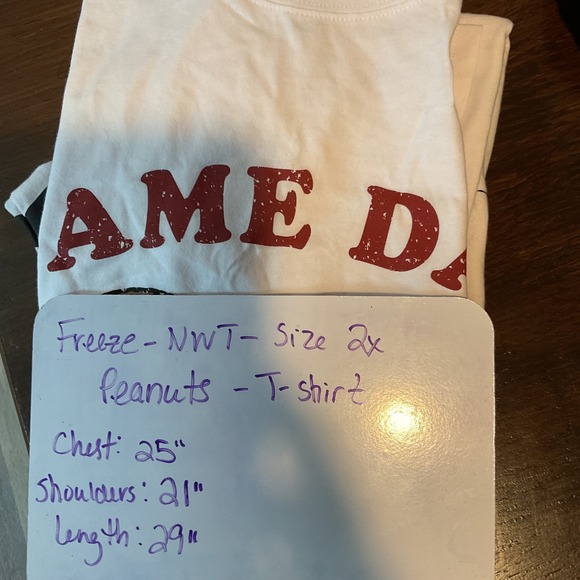 AME DA
Freeze - NWT - Size 2x
Peanuts - T-shirt
Chest: 25"
Shoulders: 21"
Length: 29"